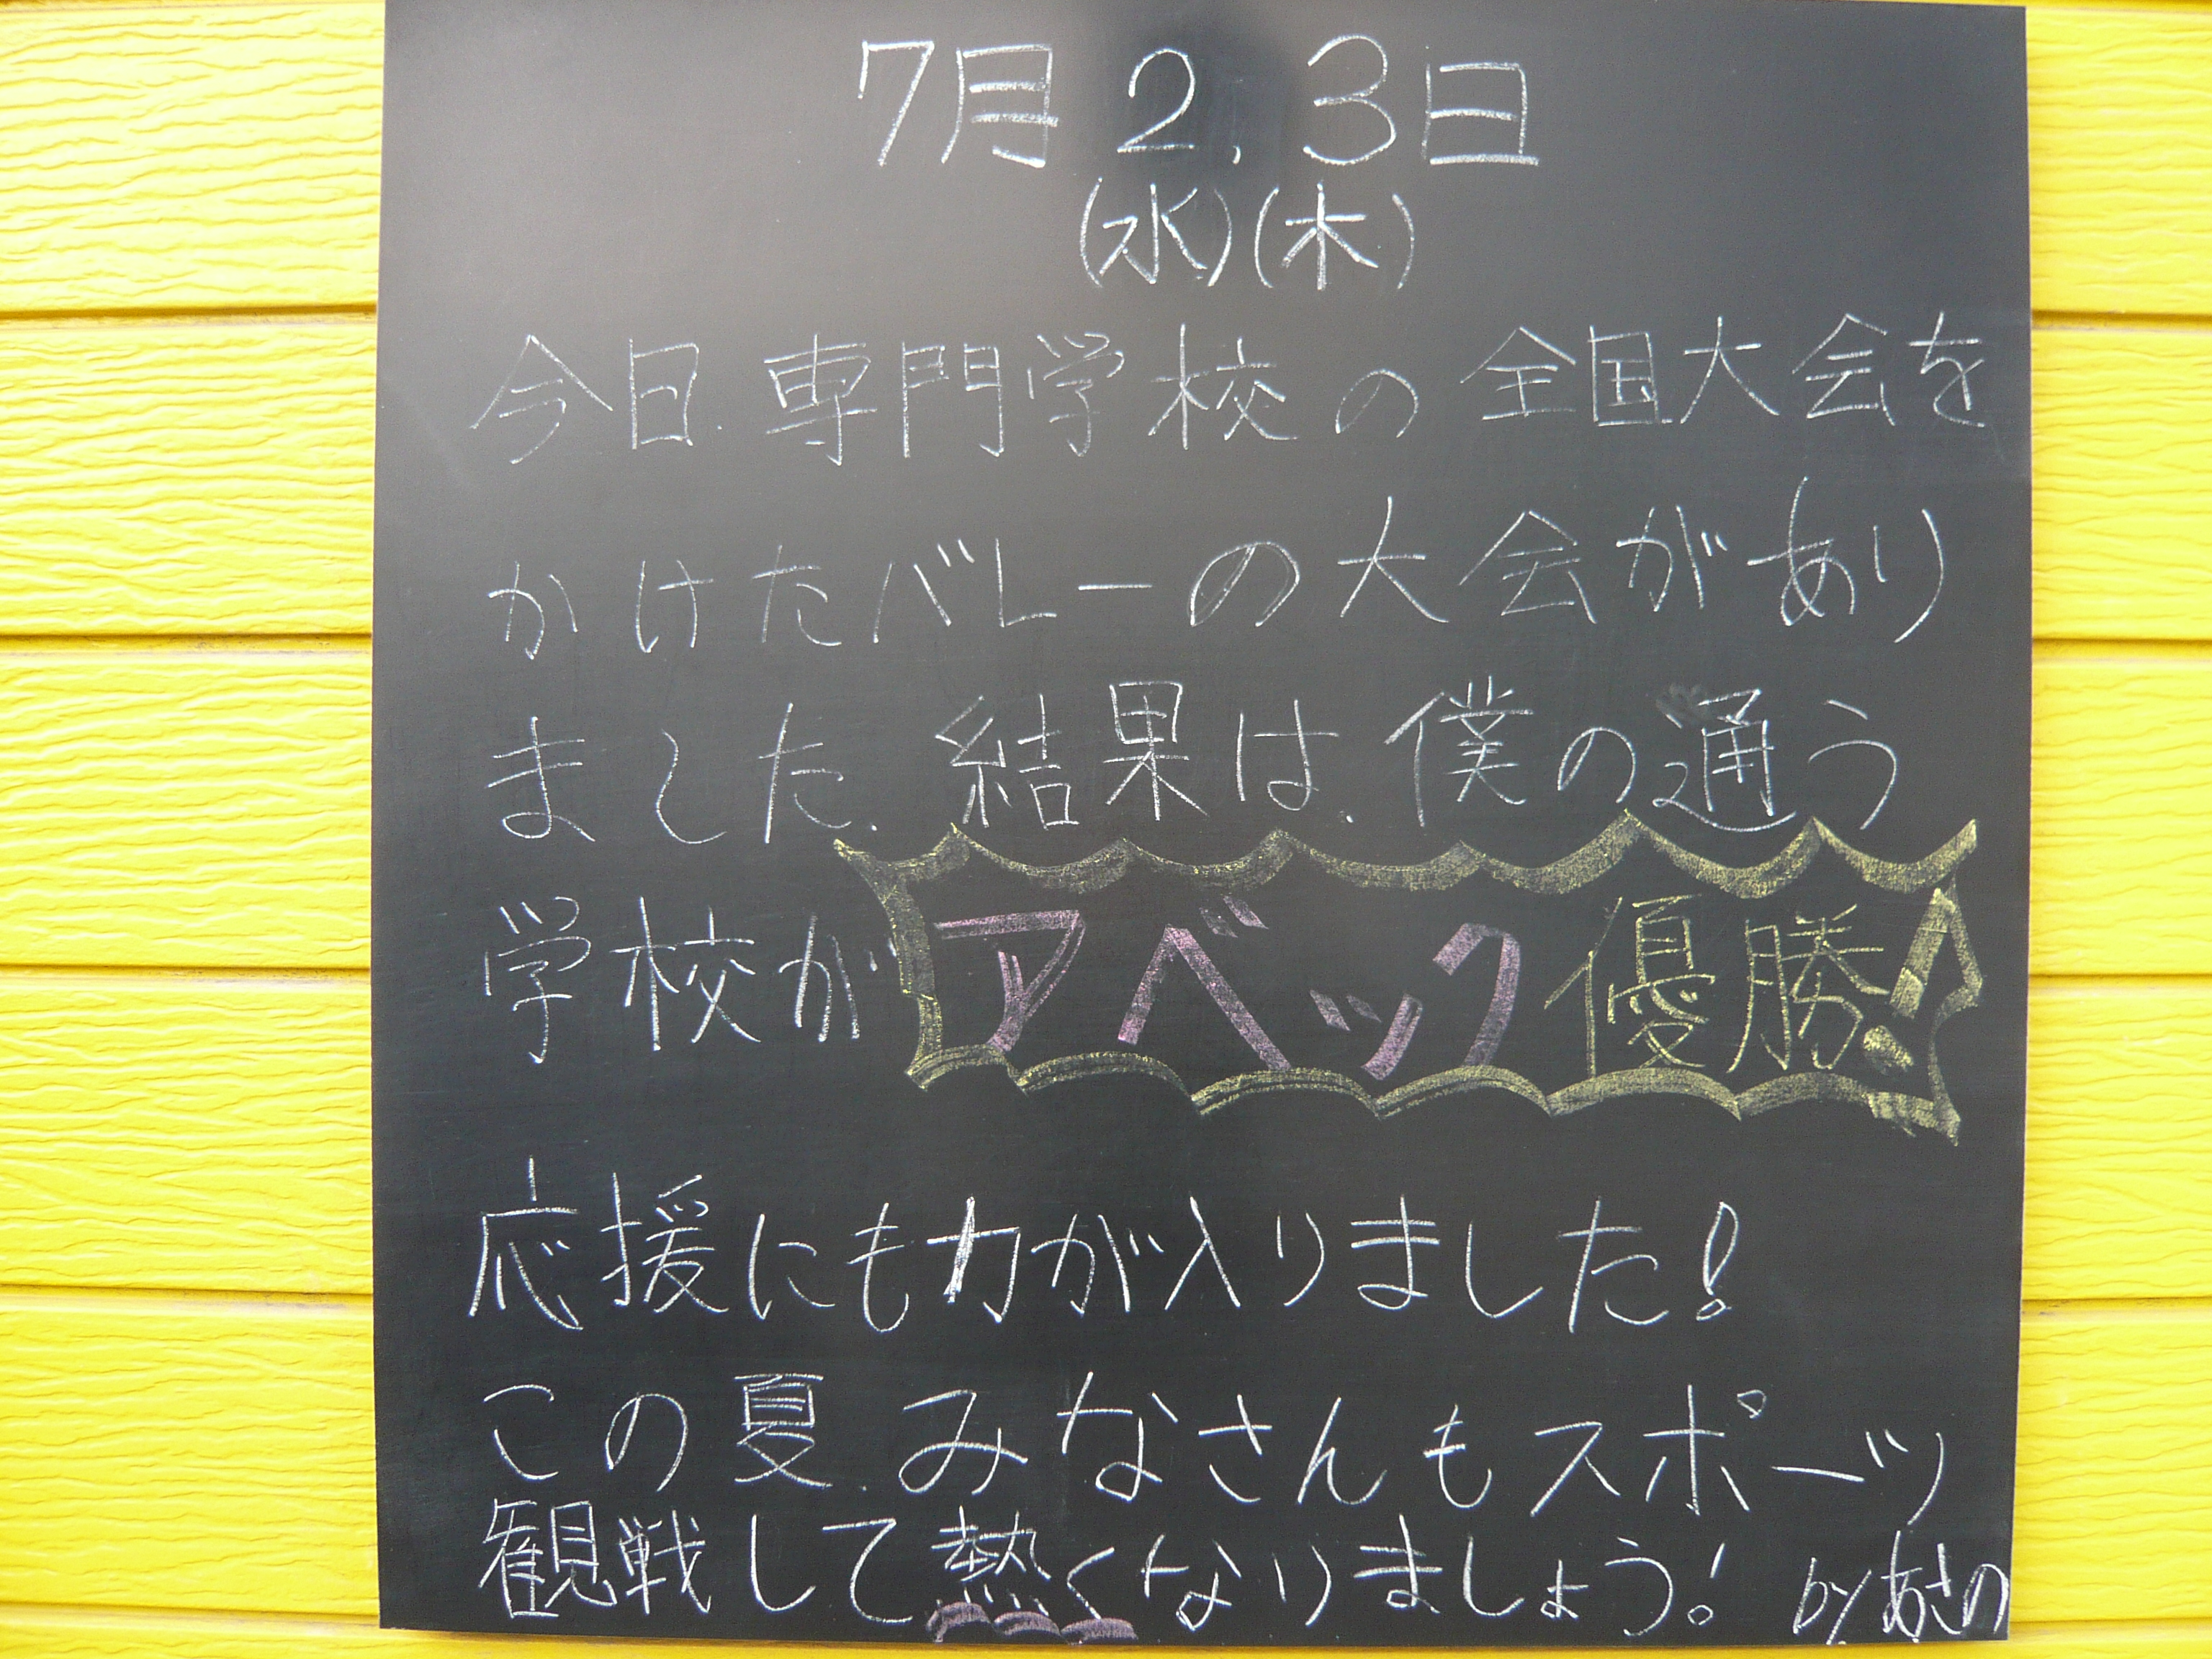 7月2,3日
(水)(木)
今日.専門学校の全国大会を
かけたバレーの大会があり
ました.結果は.僕の通う
学校がアベック優勝!
応援にも力が入りました!
この夏.みなさんもスポーツ
観戦して熱くなりましょう! by あさの